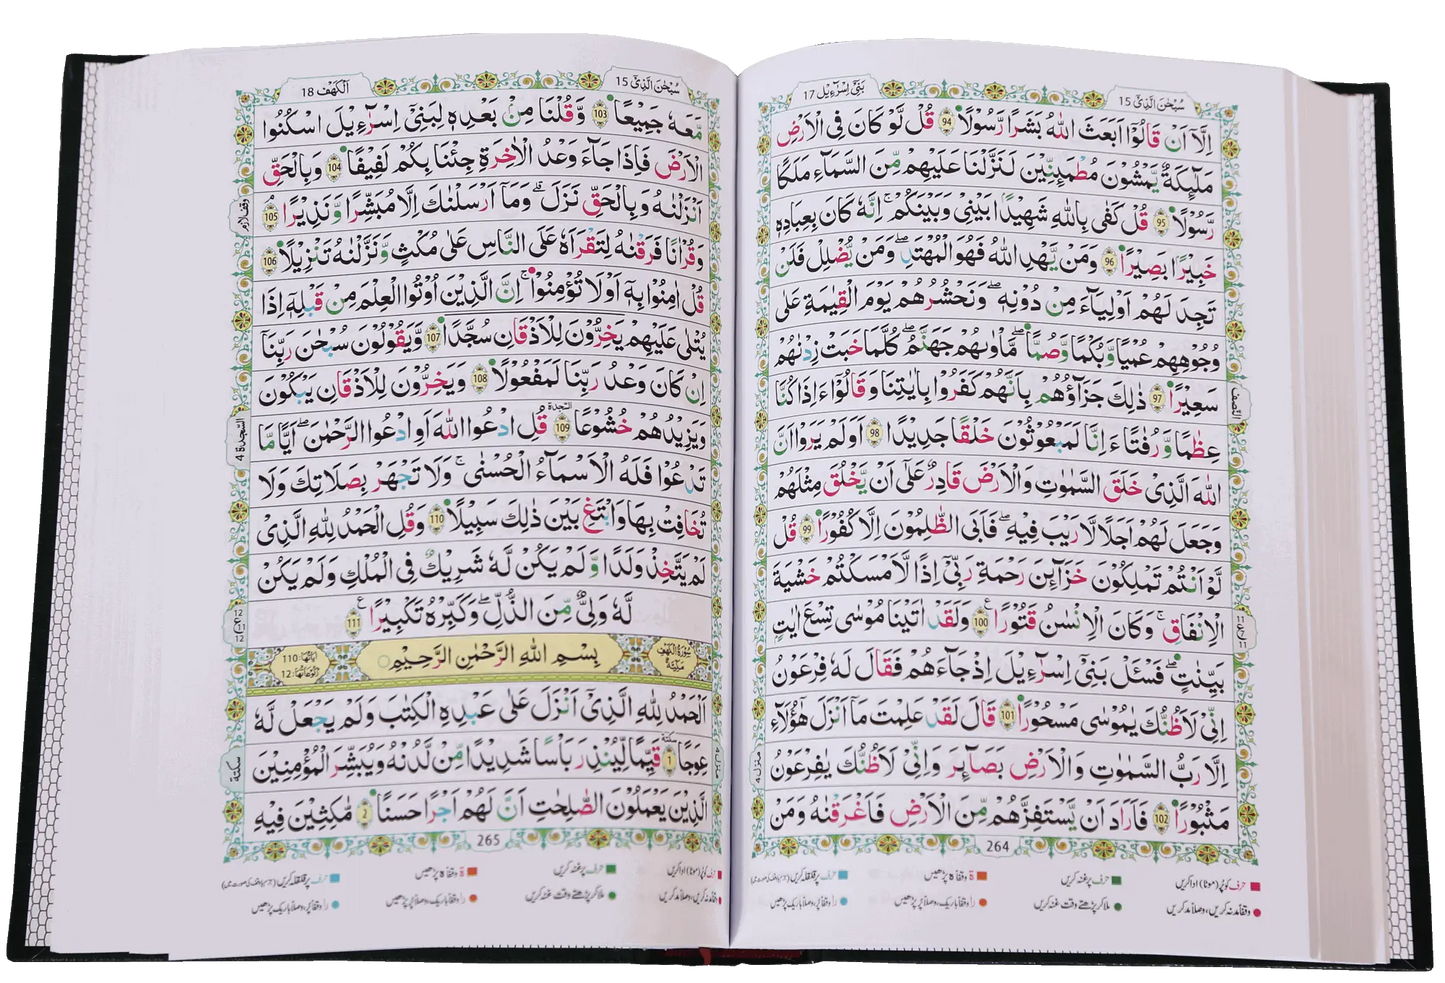 سُبْحٰنَ الَّذِیْۤ 15
بَنِیْۤ اِسْرَآءِیْل 17
اِلَّاۤ اَنْ قَالُوْۤا اَبَعَثَ اللّٰهُ بَشَرًا رَّسُوْلًا 94 قُلْ لَّوْ كَانَ فِی الْاَرْضِ
مَلٰٓىِٕكَةٌ یَّمْشُوْنَ مُطْمَىِٕنِّیْنَ لَنَزَّلْنَا عَلَیْهِمْ مِّنَ السَّمَآءِ مَلَكًا
رَّسُوْلًا 95 قُلْ كَفٰی بِاللّٰهِ شَهِیْدًۢا بَیْنِیْ وَبَیْنَكُمْ ؕ اِنَّهٗ كَانَ بِعِبَادِهٖ
خَبِیْرًۢا بَصِیْرًا 96 وَمَنْ یَّهْدِ اللّٰهُ فَهُوَ الْمُهْتَدِ ۚ وَمَنْ یُّضْلِلْ فَلَنْ
تَجِدَ لَهُمْ اَوْلِیَآءَ مِنْ دُوْنِهٖ ؕ وَنَحْشُرُهُمْ یَوْمَ الْقِیٰمَةِ عَلٰی
وُجُوْهِهِمْ عُمْیًا وَّبُكْمًا وَّصُمًّا ؕ مَاْوٰىهُمْ جَهَنَّمُ ؕ كُلَّمَا خَبَتْ زِدْنٰهُمْ
سَعِیْرًا 97 ذٰلِكَ جَزَآؤُهُمْ بِاَنَّهُمْ كَفَرُوْا بِاٰیٰتِنَا وَقَالُوْۤا ءَاِذَا كُنَّا
عِظَامًا وَّرُفَاتًا ءَاِنَّا لَمَبْعُوْثُوْنَ خَلْقًا جَدِیْدًا 98 اَوَلَمْ یَرَوْا اَنَّ
اللّٰهَ الَّذِیْ خَلَقَ السَّمٰوٰتِ وَالْاَرْضَ قَادِرٌ عَلٰۤی اَنْ یَّخْلُقَ مِثْلَهُمْ
وَجَعَلَ لَهُمْ اَجَلًا لَّا رَیْبَ فِیْهِ ؕ فَاَبَی الظّٰلِمُوْنَ اِلَّا كُفُوْرًا 99 قُلْ
لَّوْ اَنْتُمْ تَمْلِكُوْنَ خَزَآىِٕنَ رَحْمَةِ رَبِّیْۤ اِذًا لَّاَمْسَكْتُمْ خَشْیَةَ
الْاِنْفَاقِ ؕ وَكَانَ الْاِنْسَانُ قَتُوْرًا 100 وَلَقَدْ اٰتَیْنَا مُوْسٰی تِسْعَ اٰیٰتٍۭ
بَیِّنٰتٍ فَسْـَٔلْ بَنِیْۤ اِسْرَآءِیْلَ اِذْ جَآءَهُمْ فَقَالَ لَهٗ فِرْعَوْنُ
اِنِّیْ لَاَظُنُّكَ یٰمُوْسٰی مَسْحُوْرًا 101 قَالَ لَقَدْ عَلِمْتَ مَاۤ اَنْزَلَ هٰۤؤُلَآءِ
اِلَّا رَبُّ السَّمٰوٰتِ وَالْاَرْضِ بَصَآىِٕرَ ۚ وَاِنِّیْ لَاَظُنُّكَ یٰفِرْعَوْنُ
مَثْبُوْرًا 102 فَاَرَادَ اَنْ یَّسْتَفِزَّهُمْ مِّنَ الْاَرْضِ فَاَغْرَقْنٰهُ وَمَنْ
264
حرف کو پُر (موٹا) ادا کریں
حرف پر غنہ کریں
ۃ وقفاً ہ پڑھیں
وقفاً مد نہ کریں، وصلاً مد کریں
ملا کر پڑھتے وقت غنہ کریں
را وقفاً باریک، وصلاً پُر پڑھیں
را وقفاً پُر، وصلاً باریک پڑھیں
سُبْحٰنَ الَّذِیْۤ 15
اَلْكَهْف 18
مَّعَهٗ جَمِیْعًا 103 وَّقُلْنَا مِنْۢ بَعْدِهٖ لِبَنِیْۤ اِسْرَآءِیْلَ اسْكُنُوا
الْاَرْضَ فَاِذَا جَآءَ وَعْدُ الْاٰخِرَةِ جِئْنَا بِكُمْ لَفِیْفًا 104 وَبِالْحَقِّ
اَنْزَلْنٰهُ وَبِالْحَقِّ نَزَلَ ؕ وَمَاۤ اَرْسَلْنٰكَ اِلَّا مُبَشِّرًا وَّنَذِیْرًا 105
وَقُرْاٰنًا فَرَقْنٰهُ لِتَقْرَاَهٗ عَلَی النَّاسِ عَلٰی مُكْثٍ وَّنَزَّلْنٰهُ تَنْزِیْلًا 106
قُلْ اٰمِنُوْا بِهٖۤ اَوْ لَا تُؤْمِنُوْا ؕ اِنَّ الَّذِیْنَ اُوْتُوا الْعِلْمَ مِنْ قَبْلِهٖۤ اِذَا
یُتْلٰی عَلَیْهِمْ یَخِرُّوْنَ لِلْاَذْقَانِ سُجَّدًا 107 وَّیَقُوْلُوْنَ سُبْحٰنَ رَبِّنَاۤ
اِنْ كَانَ وَعْدُ رَبِّنَا لَمَفْعُوْلًا 108 وَیَخِرُّوْنَ لِلْاَذْقَانِ یَبْكُوْنَ
وَیَزِیْدُهُمْ خُشُوْعًا 109 قُلِ ادْعُوا اللّٰهَ اَوِ ادْعُوا الرَّحْمٰنَ ؕ اَیًّا مَّا
تَدْعُوْا فَلَهُ الْاَسْمَآءُ الْحُسْنٰی ۚ وَلَا تَجْهَرْ بِصَلَاتِكَ وَلَا
تُخَافِتْ بِهَا وَابْتَغِ بَیْنَ ذٰلِكَ سَبِیْلًا 110 وَقُلِ الْحَمْدُ لِلّٰهِ الَّذِیْ
لَمْ یَتَّخِذْ وَلَدًا وَّلَمْ یَكُنْ لَّهٗ شَرِیْكٌ فِی الْمُلْكِ وَلَمْ یَكُنْ
لَّهٗ وَلِیٌّ مِّنَ الذُّلِّ وَكَبِّرْهُ تَكْبِیْرًا 111
سُوْرَةُ الْكَهْفِ مَكِّیَّةٌ
بِسْمِ اللّٰهِ الرَّحْمٰنِ الرَّحِیْمِ
اٰیَاتُهَا: 110
رُكُوْعَاتُهَا: 12
اَلْحَمْدُ لِلّٰهِ الَّذِیْۤ اَنْزَلَ عَلٰی عَبْدِهِ الْكِتٰبَ وَلَمْ یَجْعَلْ لَّهٗ
عِوَجًا 1 قَیِّمًا لِّیُنْذِرَ بَاْسًا شَدِیْدًا مِّنْ لَّدُنْهُ وَیُبَشِّرَ الْمُؤْمِنِیْنَ
الَّذِیْنَ یَعْمَلُوْنَ الصّٰلِحٰتِ اَنَّ لَهُمْ اَجْرًا حَسَنًا 2 مَّاكِثِیْنَ فِیْهِ
265
حرف کو پُر (موٹا) ادا کریں
حرف پر غنہ کریں
ۃ وقفاً ہ پڑھیں
وقفاً مد نہ کریں، وصلاً مد کریں
ملا کر پڑھتے وقت غنہ کریں
را وقفاً باریک، وصلاً پُر پڑھیں
را وقفاً پُر، وصلاً باریک پڑھیں